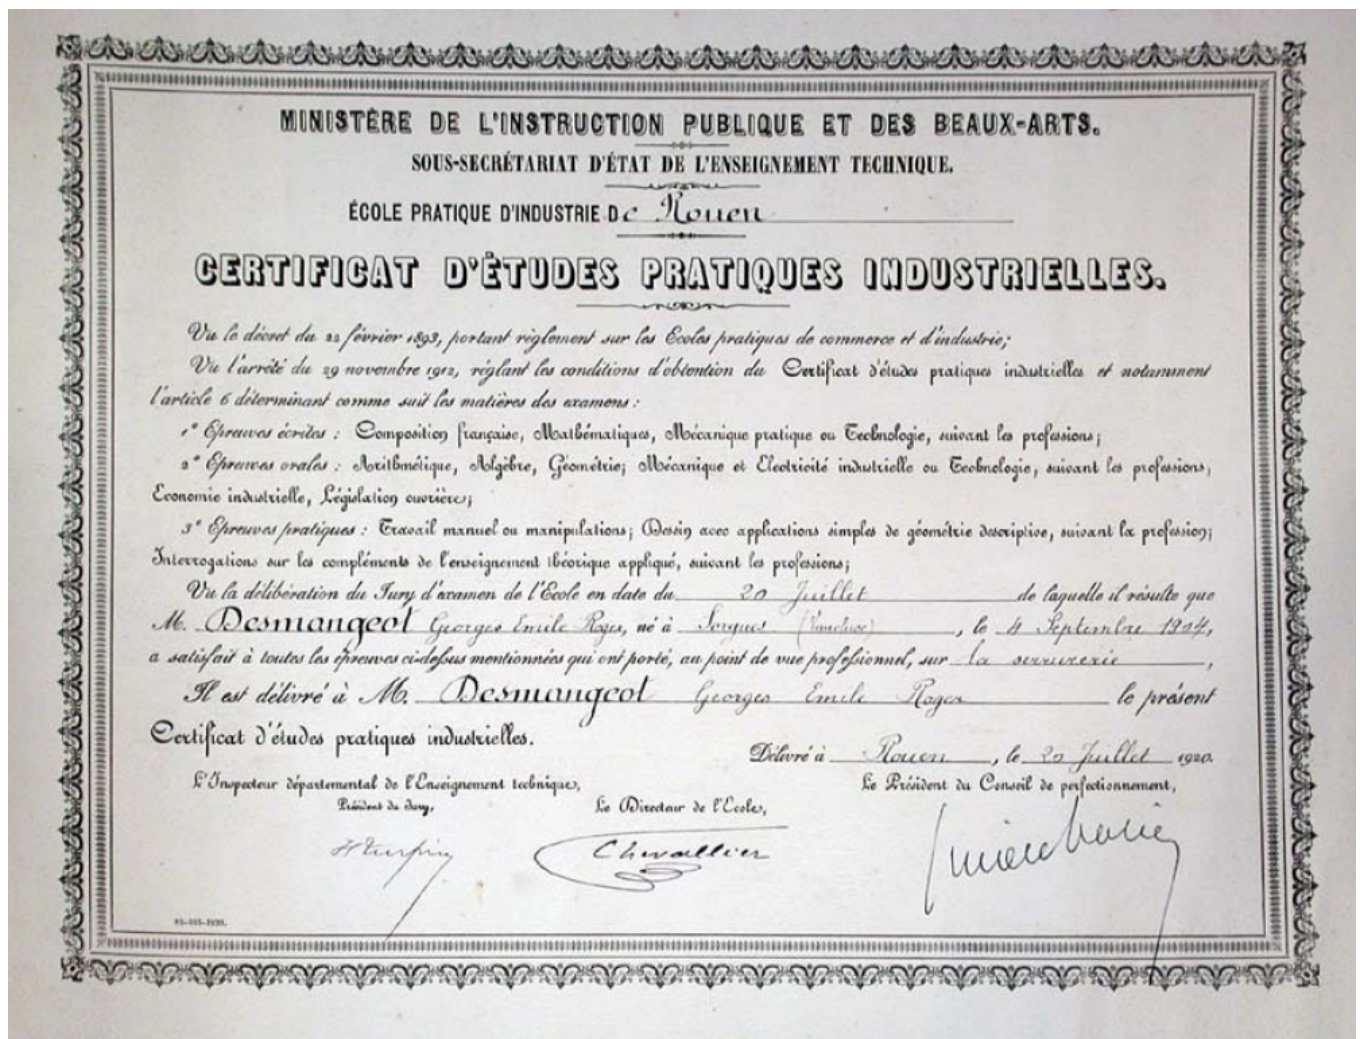 MINISTÈRE DE L'INSTRUCTION PUBLIQUE ET DES BEAUX-ARTS.
SOUS-SECRÉTARIAT D'ÉTAT DE L'ENSEIGNEMENT TECHNIQUE.
ÉCOLE PRATIQUE D'INDUSTRIE De Rouen
CERTIFICAT D'ÉTUDES PRATIQUES INDUSTRIELLES.
Vu le décret du 22 février 1893, portant règlement sur les Ecoles pratiques de commerce et d'industrie;
Vu l'arrêté du 29 novembre 1912, réglant les conditions d'obtention du Certificat d'études pratiques industrielles et notamment
l'article 6 déterminant comme suit les matières des examens :
1° Épreuves écrites : Composition française, Mathématiques, Mécanique pratique ou Technologie, suivant les professions;
2° Épreuves orales : Arithmétique, Algèbre, Géométrie; Mécanique et Electricité industrielle ou Technologie, suivant les professions,
Economie industrielle, Législation ouvrière;
3° Épreuves pratiques : Travail manuel ou manipulations; Dessin avec applications simples de géométrie descriptive, suivant la profession;
Interrogations sur les compléments de l'enseignement théorique appliqué, suivant les professions;
Vu la délibération du Jury d'examen de l'École en date du 20 Juillet de laquelle il résulte que
M. Desmangeot Georges Emile Roger, né à Sorgues (Vaucluse), le 4 Septembre 1904,
a satisfait à toutes les épreuves ci-dessus mentionnées qui ont porté, au point de vue professionnel, sur la serrurerie,
Il est délivré à M. Desmangeot Georges Emile Roger le présent
Certificat d'études pratiques industrielles.
Délivré à Rouen, le 20 Juillet 1920.
L'Inspecteur départemental de l'Enseignement technique,
Président du Jury,
Le Directeur de l'Ecole,
Le Président du Conseil de perfectionnement,
Chevallier